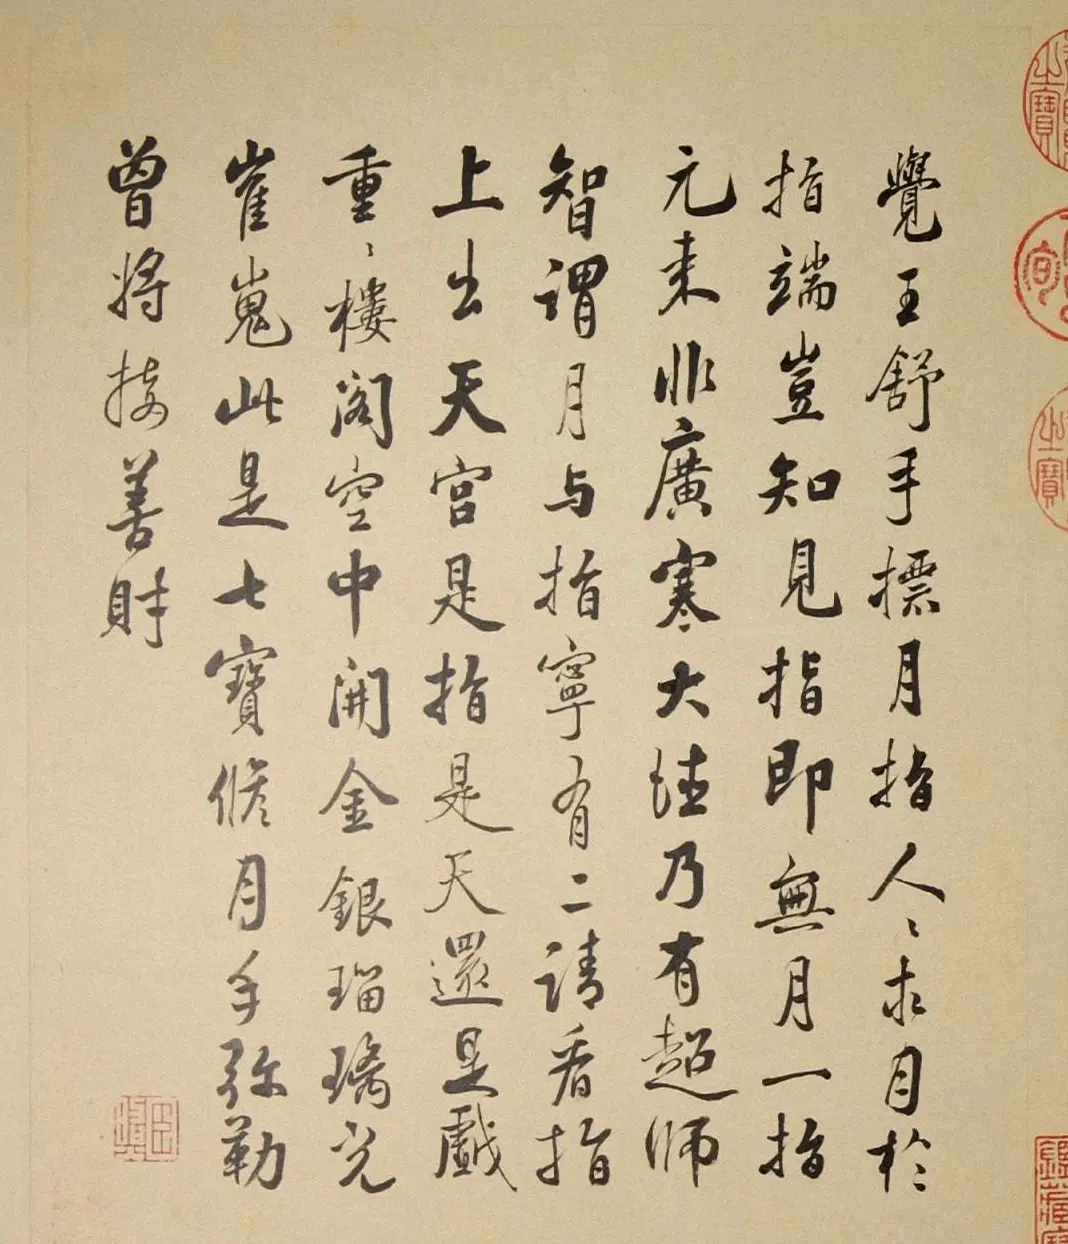 覺王舒手標月指人〻求月於
指端豈知見指即無月一指
元來非廣寒大乃有超師
智謂月与指寧有二請看指
上出天宮是指是天還是戲
重〻樓閣空中開金銀瑠璃光
崔嵬此是七寶脩月手弥勒
曾將接善財
之寶
之寶
鑑藏寶